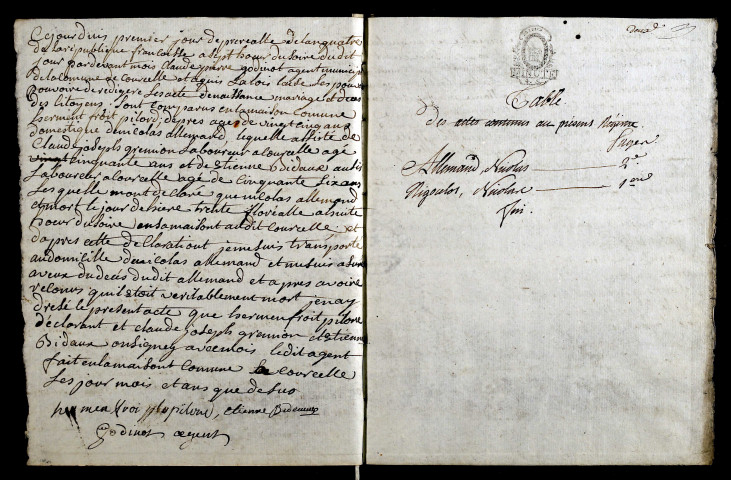 Cejourdhis premier jour de prerealle delanquatre
de la republique francaisse a sept heur du soire du dit
jour pardevant mois Claude pierre godinot agent municip
de la comune de courcelle et aquis la lois lasse les pouv
pouvoire de redigere les acte denaissance mariage et deces
des citoyens sont comparus en la maison commune
herment froit pilord, depres agé de vingt cinq ans
domestique de nicolas allemand lequelle assiste de
Claude joseph grennon Laboureur a Courcelle agé
vingt cinquante ans et de etienne Bidaux aussi
Laboureur a Courcelle agé de Cinquante six ans
Lesquelle mont declaré que nicolas allemand
est mort le jour dersiere trente floréalle a huite
heur du soire en sa maison audit Courcelle et
daprès cette declarationt je me suis transporte
au domicille de nicolas allemand et me suis assure
aveux du decés du dit allemand et apres avoire
reconus quil etoit veritablement mort jen ay
dresé le present acte que hermen froit pilord
déclarant et claude joseph grennon et etienne
Bidaux on signez avec mois ledit agent
fait en la maisont Commune de Courcelle
Les jour mois et ans que de sus
etienne Bideaux
godinot agent
Table
Des actes contenus au présent Registre
Pages
Allemand, Nicolas 2e
Nicolas 1ere
Fin.